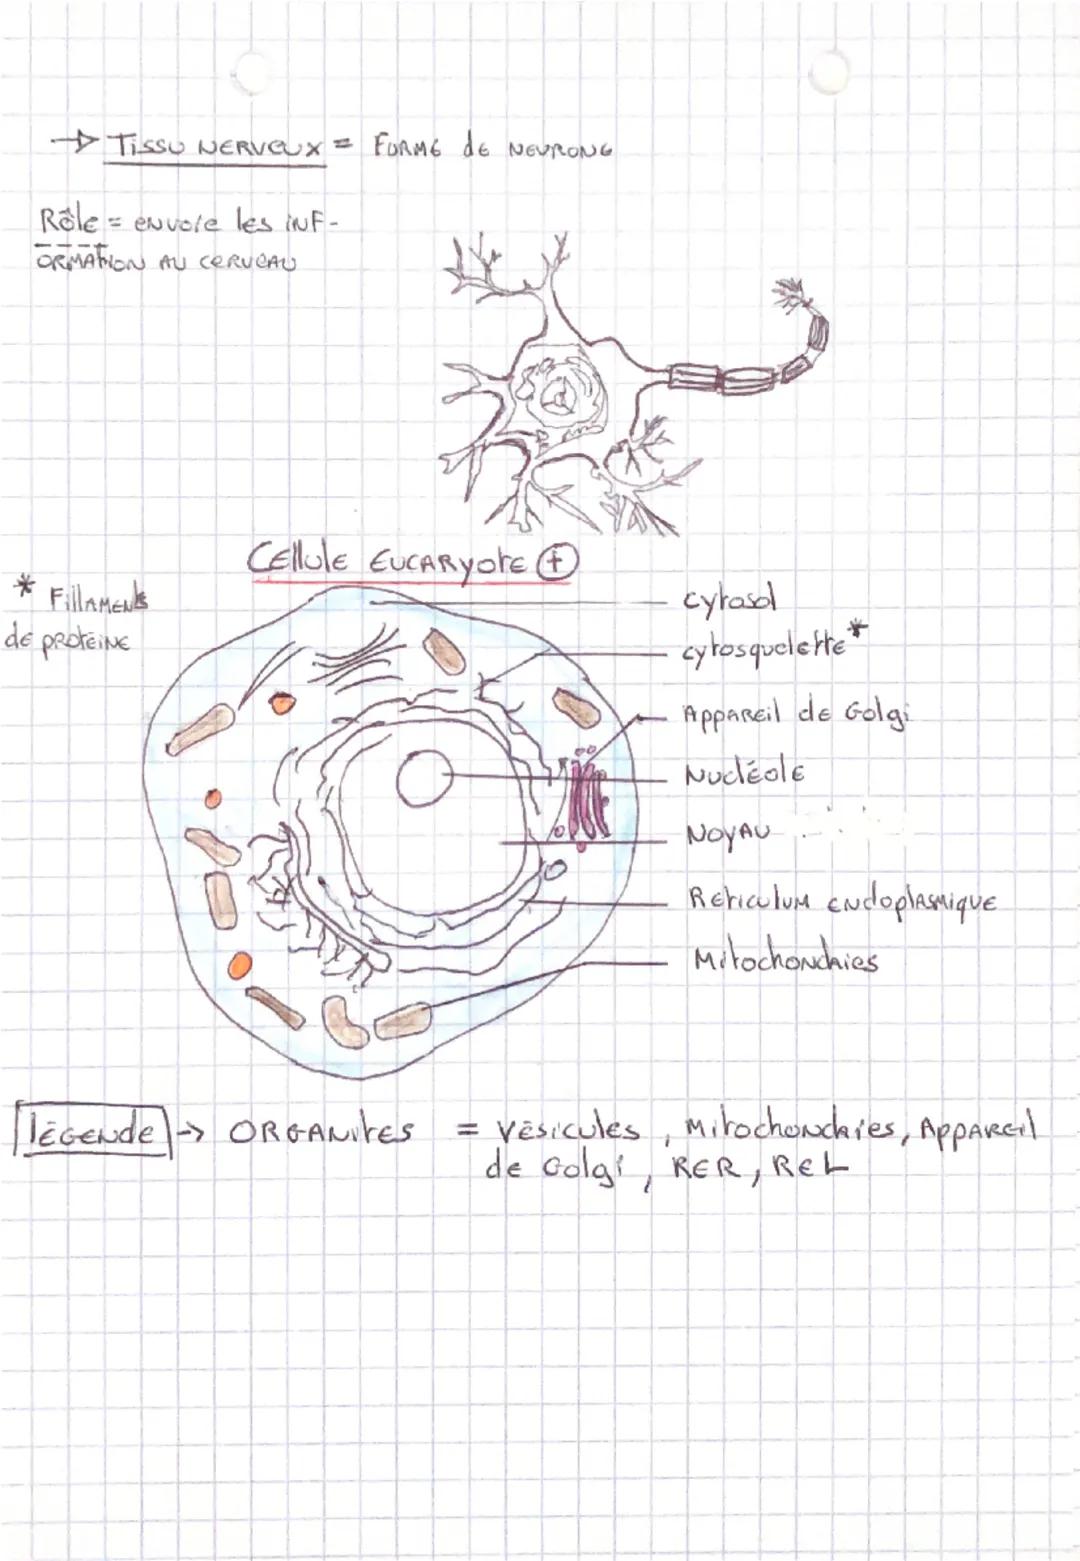 → Tissu nerveux = Formé de neurone
Rôle = envoie les inf-
ormation au cerveau
Cellule Eucaryote +
* Fillaments
de protéine
cytosol
cytosquelette*
Appareil de Golgi
Nucléole
Noyau
Réticulum endoplasmique
Mitochondries
légende → Organites = Vésicules, Mitochondries, Appareil
de Golgi, RER, REL